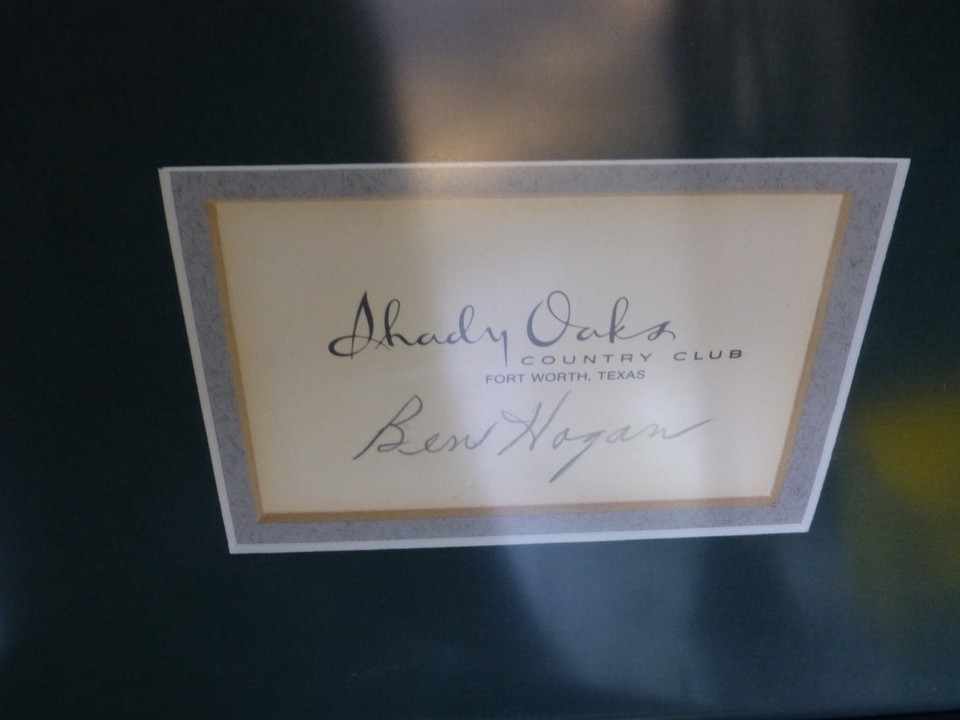 Shady Oaks
COUNTRY CLUB
FORT WORTH, TEXAS
Ben Hogan